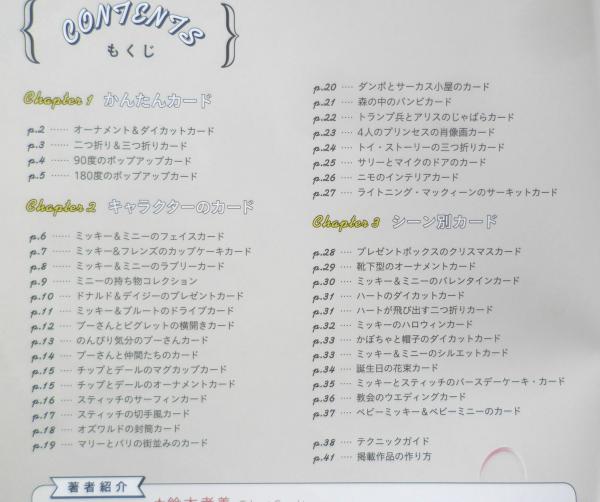 CONTENTS
もくじ
Chapter 1 かんたんカード
p.2 …… オーナメント＆ダイカットカード
p.3 …… 二つ折り＆三つ折りカード
p.4 …… 90度のポップアップカード
p.5 …… 180度のポップアップカード
Chapter 2 キャラクターのカード
p.6 …… ミッキー＆ミニーのフェイスカード
p.7 …… ミッキー＆フレンズのカップケーキカード
p.8 …… ミッキー＆ミニーのラブリーカード
p.9 …… ミニーの持ち物コレクション
p.10 …… ドナルド＆デイジーのプレゼントカード
p.11 …… ミッキー＆プルートのドライブカード
p.12 …… プーさんとピグレットの横開きカード
p.13 …… のんびり気分のプーさんカード
p.14 …… プーさんと仲間たちのカード
p.15 …… チップとデールのマグカップカード
p.15 …… チップとデールのオーナメントカード
p.16 …… スティッチのサーフィンカード
p.17 …… スティッチの切手風カード
p.18 …… オズワルドの封筒カード
p.19 …… マリーとパリの街並みのカード
p.20 …… ダンボとサーカス小屋のカード
p.21 …… 森の中のバンビカード
p.22 …… トランプ兵とアリスのじゃばらカード
p.23 …… 4人のプリンセスの肖像画カード
p.24 …… トイ・ストーリーの三つ折りカード
p.25 …… サリーとマイクのドアのカード
p.26 …… ニモのインテリアカード
p.27 …… ライトニング・マックィーンのサーキットカード
Chapter 3 シーン別カード
p.28 …… プレゼントボックスのクリスマスカード
p.29 …… 靴下型のオーナメントカード
p.30 …… ミッキー＆ミニーのバレンタインカード
p.31 …… ハートのダイカットカード
p.31 …… ハートが飛び出す二つ折りカード
p.32 …… ミッキーのハロウィンカード
p.33 …… かぼちゃと帽子のダイカットカード
p.33 …… ミッキー＆ミニーのシルエットカード
p.34 …… 誕生日の花束カード
p.35 …… ミッキーとスティッチのバースデーケーキ・カード
p.36 …… 教会のウエディングカード
p.37 …… ベビーミッキー＆ベビーミニーのカード
p.38 …… テクニックガイド
p.41 …… 掲載作品の作り方
著者紹介